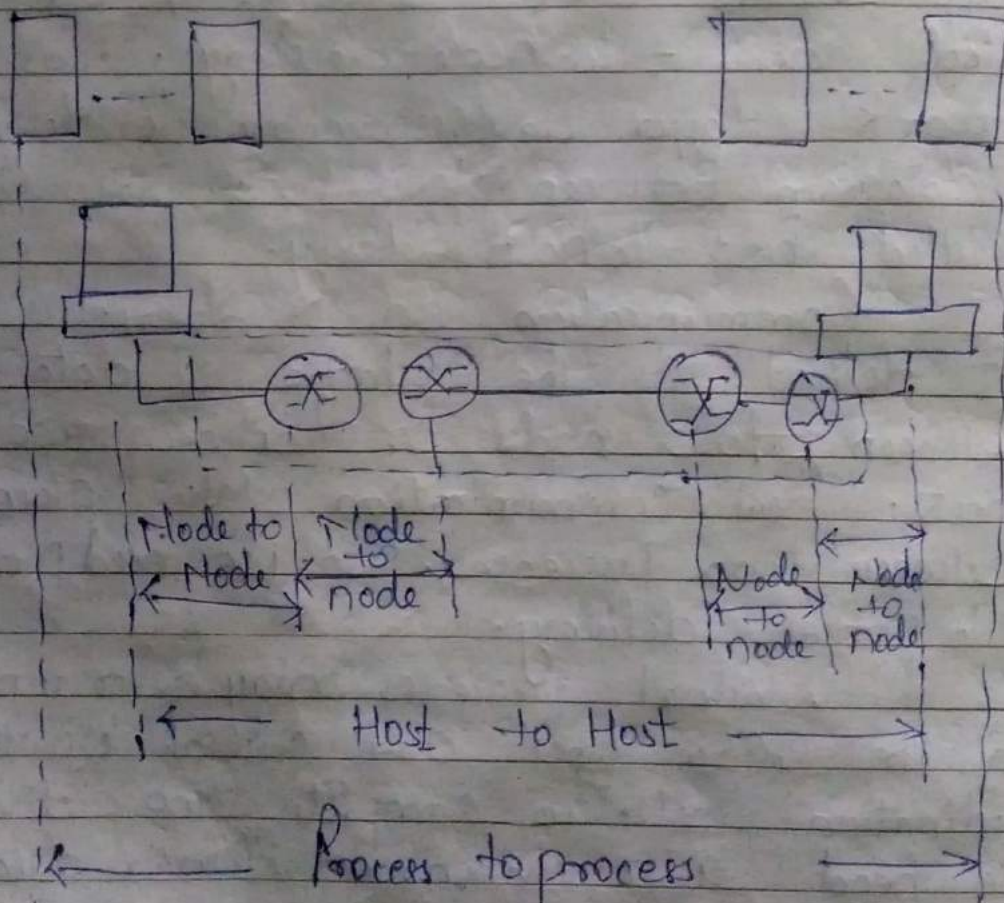 Node to
Node
Node
to
node
Node
to
node
Node
to
node
Host to Host
Process to process